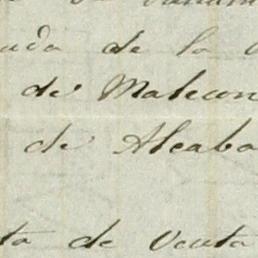 uda de la
de Malecon
de Alcaba
ta de Venta